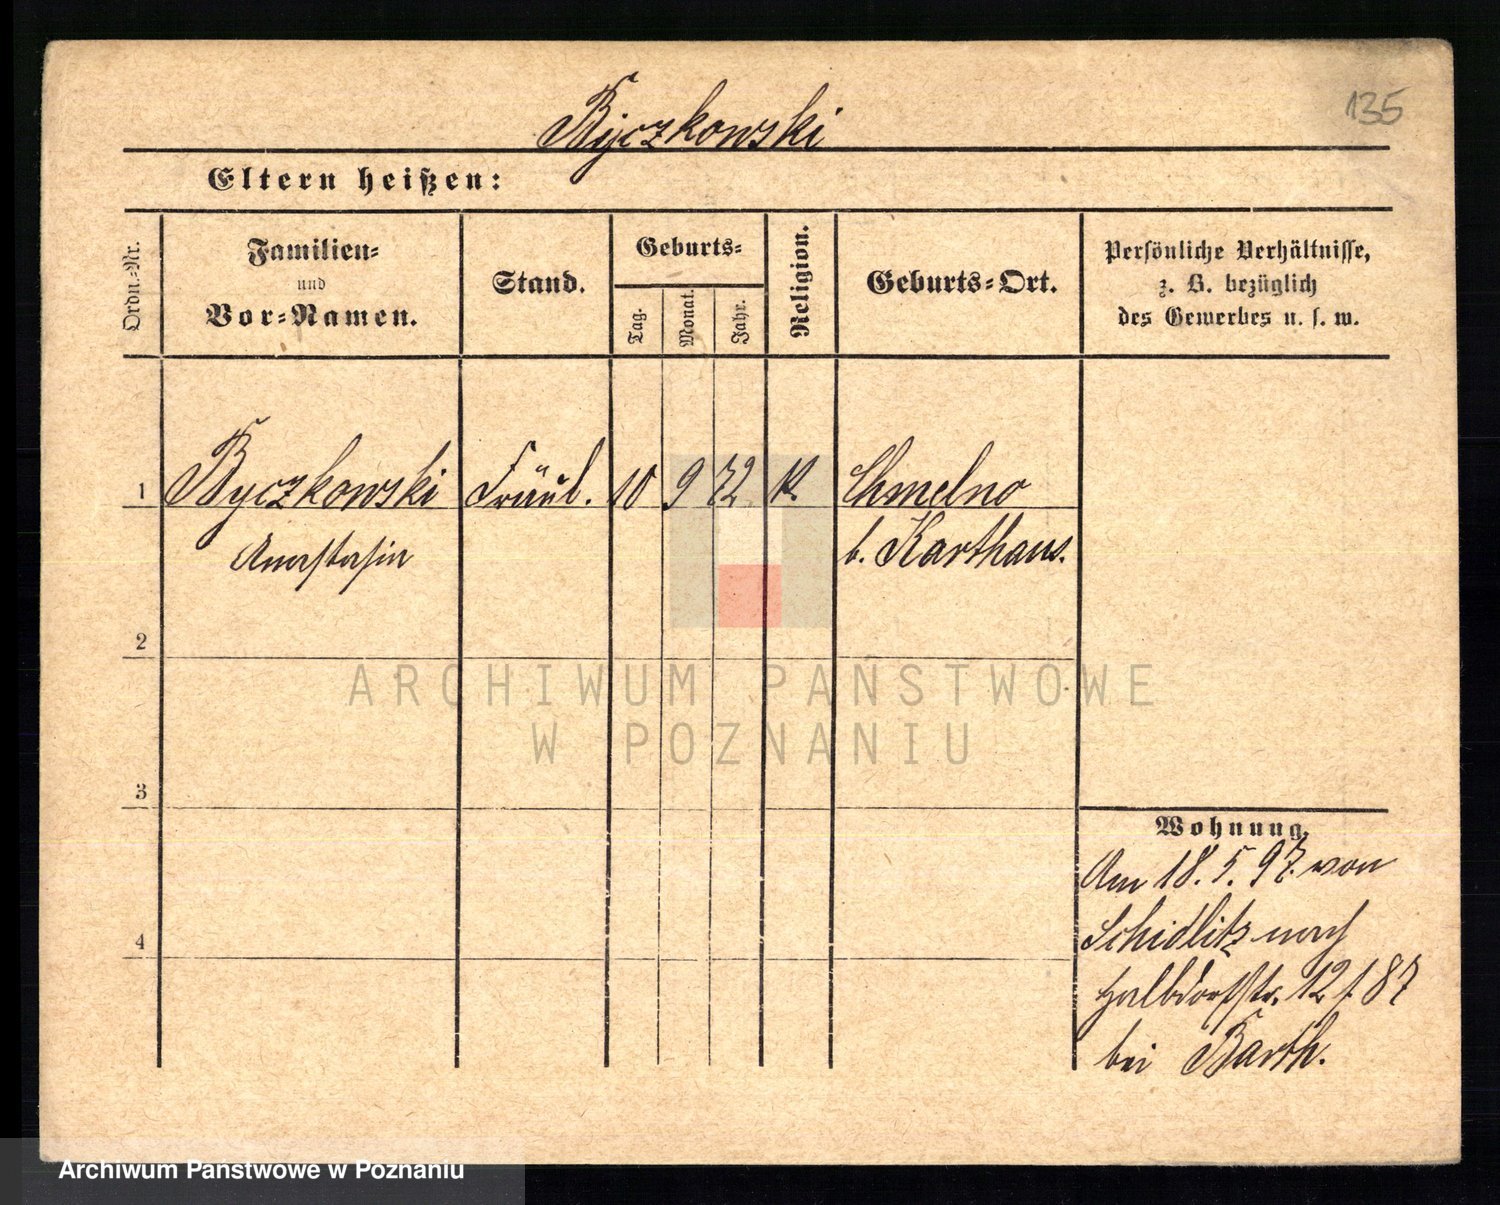 135
Byczkowski
Eltern heißen:
Ordn.-Nr.
Familien-
und
Vor-Namen.
Stand.
Geburts-
Tag.
Monat.
Jahr.
Religion.
Geburts-Ort.
Persönliche Verhältnisse,
z. B. bezüglich
des Gewerbes u. s. w.
1 Byczkowski Fräul. 10 9 72 K. Chmelno
Anastasia b. Karthaus.
2
3
4
Wohnung.
Am 18. 5. 97. von
Schidlitz nach
Halbdorfstr. 12 f. 87
bei Barth.
ARCHIWUM PAŃSTWOWE
W POZNANIU
Archiwum Państwowe w Poznaniu